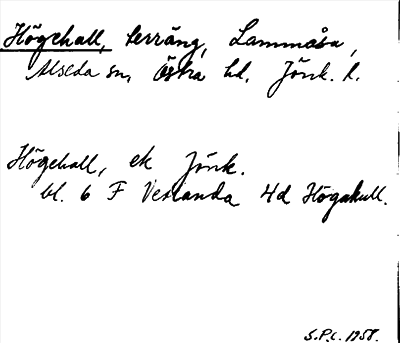 Högehall, terräng, Lammåsa,
Alseda sn, Östra hd, Jönk. l.
Högehall, ek Jönk.
bl. 6 F Vetlanda 4d Högakull.
S.P.L. 1958.